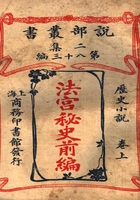 說部叢書
二集
第八十三編
歷史小說 卷上
法宮秘史前編
上海商務印書館發行